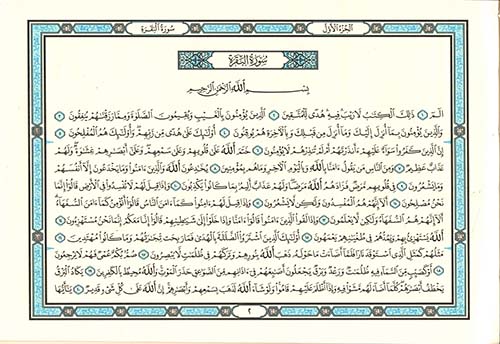 الجزء الأول
سورة البقرة
سورة البقرة
بسم الله الرحمن الرحيم
الٓمٓ ١ ذَٰلِكَ الْكِتَٰبُ لَا رَيْبَ فِيهِ هُدًى لِّلْمُتَّقِينَ ٢ الَّذِينَ يُؤْمِنُونَ بِالْغَيْبِ وَيُقِيمُونَ الصَّلَوٰةَ وَمِمَّا رَزَقْنَٰهُمْ يُنفِقُونَ ٣
وَالَّذِينَ يُؤْمِنُونَ بِمَا أُنزِلَ إِلَيْكَ وَمَا أُنزِلَ مِن قَبْلِكَ وَبِالْءَاخِرَةِ هُمْ يُوقِنُونَ ٤ أُولَٰئِكَ عَلَىٰ هُدًى مِّن رَّبِّهِمْ وَأُولَٰئِكَ هُمُ الْمُفْلِحُونَ ٥
إِنَّ الَّذِينَ كَفَرُوا سَوَاءٌ عَلَيْهِمْ ءَأَنذَرْتَهُمْ أَمْ لَمْ تُنذِرْهُمْ لَا يُؤْمِنُونَ ٦ خَتَمَ اللَّهُ عَلَىٰ قُلُوبِهِمْ وَعَلَىٰ سَمْعِهِمْ وَعَلَىٰ أَبْصَٰرِهِمْ غِشَٰوَةٌ وَلَهُمْ
عَذَابٌ عَظِيمٌ ٧ وَمِنَ النَّاسِ مَن يَقُولُ ءَامَنَّا بِاللَّهِ وَبِالْيَوْمِ الْءَاخِرِ وَمَا هُم بِمُؤْمِنِينَ ٨ يُخَٰدِعُونَ اللَّهَ وَالَّذِينَ ءَامَنُوا وَمَا يَخْدَعُونَ إِلَّا أَنفُسَهُمْ
وَمَا يَشْعُرُونَ ٩ فِي قُلُوبِهِم مَّرَضٌ فَزَادَهُمُ اللَّهُ مَرَضًا وَلَهُمْ عَذَابٌ أَلِيمٌ بِمَا كَانُوا يَكْذِبُونَ ١٠ وَإِذَا قِيلَ لَهُمْ لَا تُفْسِدُوا فِي الْأَرْضِ قَالُوا إِنَّمَا
نَحْنُ مُصْلِحُونَ ١١ أَلَا إِنَّهُمْ هُمُ الْمُفْسِدُونَ وَلَٰكِن لَّا يَشْعُرُونَ ١٢ وَإِذَا قِيلَ لَهُمْ ءَامِنُوا كَمَا ءَامَنَ النَّاسُ قَالُوا أَنُؤْمِنُ كَمَا ءَامَنَ السُّفَهَاءُ
أَلَا إِنَّهُمْ هُمُ السُّفَهَاءُ وَلَٰكِن لَّا يَعْلَمُونَ ١٣ وَإِذَا لَقُوا الَّذِينَ ءَامَنُوا قَالُوا ءَامَنَّا وَإِذَا خَلَوْا إِلَىٰ شَيَٰطِينِهِمْ قَالُوا إِنَّا مَعَكُمْ إِنَّمَا نَحْنُ مُسْتَهْزِءُونَ ١٤
اللَّهُ يَسْتَهْزِئُ بِهِمْ وَيَمُدُّهُمْ فِي طُغْيَٰنِهِمْ يَعْمَهُونَ ١٥ أُولَٰئِكَ الَّذِينَ اشْتَرَوُا الضَّلَٰلَةَ بِالْهُدَىٰ فَمَا رَبِحَت تِّجَٰرَتُهُمْ وَمَا كَانُوا مُهْتَدِينَ ١٦
مَثَلُهُمْ كَمَثَلِ الَّذِي اسْتَوْقَدَ نَارًا فَلَمَّا أَضَاءَتْ مَا حَوْلَهُ ذَهَبَ اللَّهُ بِنُورِهِمْ وَتَرَكَهُمْ فِي ظُلُمَٰتٍ لَّا يُبْصِرُونَ ١٧ صُمٌّ بُكْمٌ عُمْيٌ فَهُمْ لَا يَرْجِعُونَ
١٨ أَوْ كَصَيِّبٍ مِّنَ السَّمَاءِ فِيهِ ظُلُمَٰتٌ وَرَعْدٌ وَبَرْقٌ يَجْعَلُونَ أَصَٰبِعَهُمْ فِي ءَاذَانِهِم مِّنَ الصَّوَٰعِقِ حَذَرَ الْمَوْتِ وَاللَّهُ مُحِيطٌ بِالْكَٰفِرِينَ ١٩ يَكَادُ الْبَرْقُ
يَخْطَفُ أَبْصَٰرَهُمْ كُلَّمَا أَضَاءَ لَهُم مَّشَوْا فِيهِ وَإِذَا أَظْلَمَ عَلَيْهِمْ قَامُوا وَلَوْ شَاءَ اللَّهُ لَذَهَبَ بِسَمْعِهِمْ وَأَبْصَٰرِهِمْ إِنَّ اللَّهَ عَلَىٰ كُلِّ شَيْءٍ قَدِيرٌ ٢٠ يَٰأَيُّهَا
٢